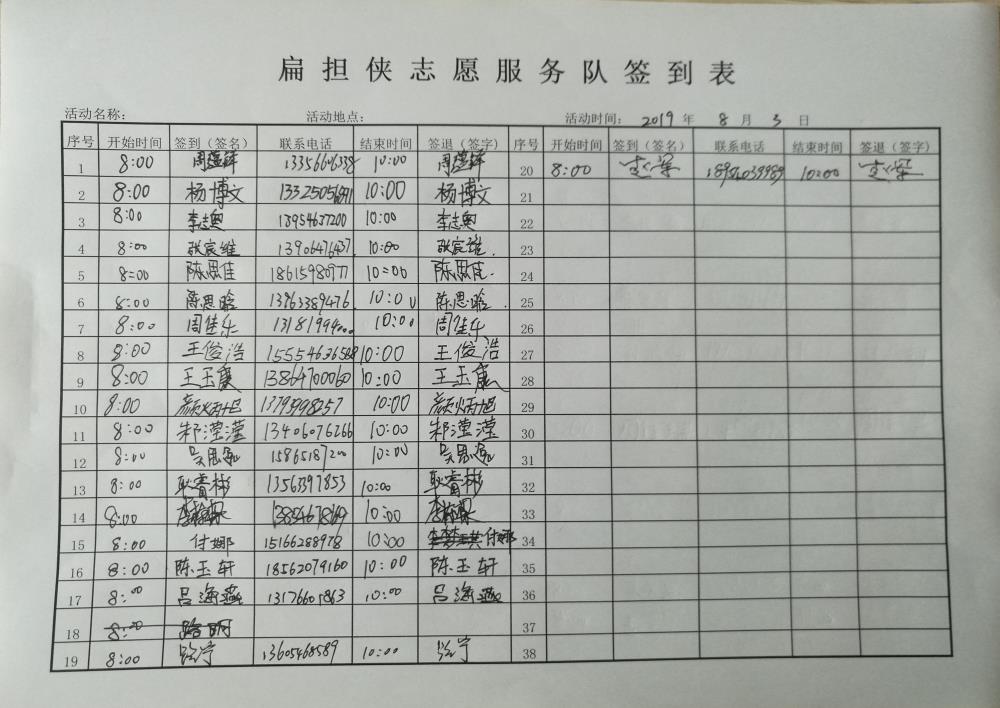 扁担侠志愿服务队签到表
活动名称: 活动地点: 活动时间: 2019 年 8 月 3 日
序号 开始时间 签到（签名） 联系电话 结束时间 签退（签字） 序号 开始时间 签到（签名） 联系电话 结束时间 签退（签字）
1 8:00 10:00 20 8:00 18921039989 10:00
2 8:00 杨博文 10:00 杨博文 21
3 8:00 13954637200 10:00 22
4 8:00 张宸维 13906476437 10:00 张宸维 23
5 8:00 陈思佳 18615980977 10:00 陈思佳 24
6 8:00 陈思晗 13763389476 10:00 陈思晗 25
7 8:00 周佳乐 10:00 周佳乐 26
8 8:00 王俊浩 15554636588 10:00 王俊浩 27
9 8:00 王玉康 13864700060 10:00 王玉康 28
10 8:00 颜炳旭 13793998257 10:00 颜炳旭 29
11 8:00 祁滢滢 13406076266 10:00 祁滢滢 30
12 8:00 15865187200 10:00 31
13 8:00 耿睿彬 1356397853 10:00 耿睿彬 32
14 8:00 10:00 33
15 8:00 付娜 15166288978 10:00 付娜 34
16 8:00 陈玉轩 18562079160 10:00 陈玉轩 35
17 8:00 吕海燕 13176601863 10:00 吕海燕 36
18 8:00 37
19 8:00 13605468589 10:00 38